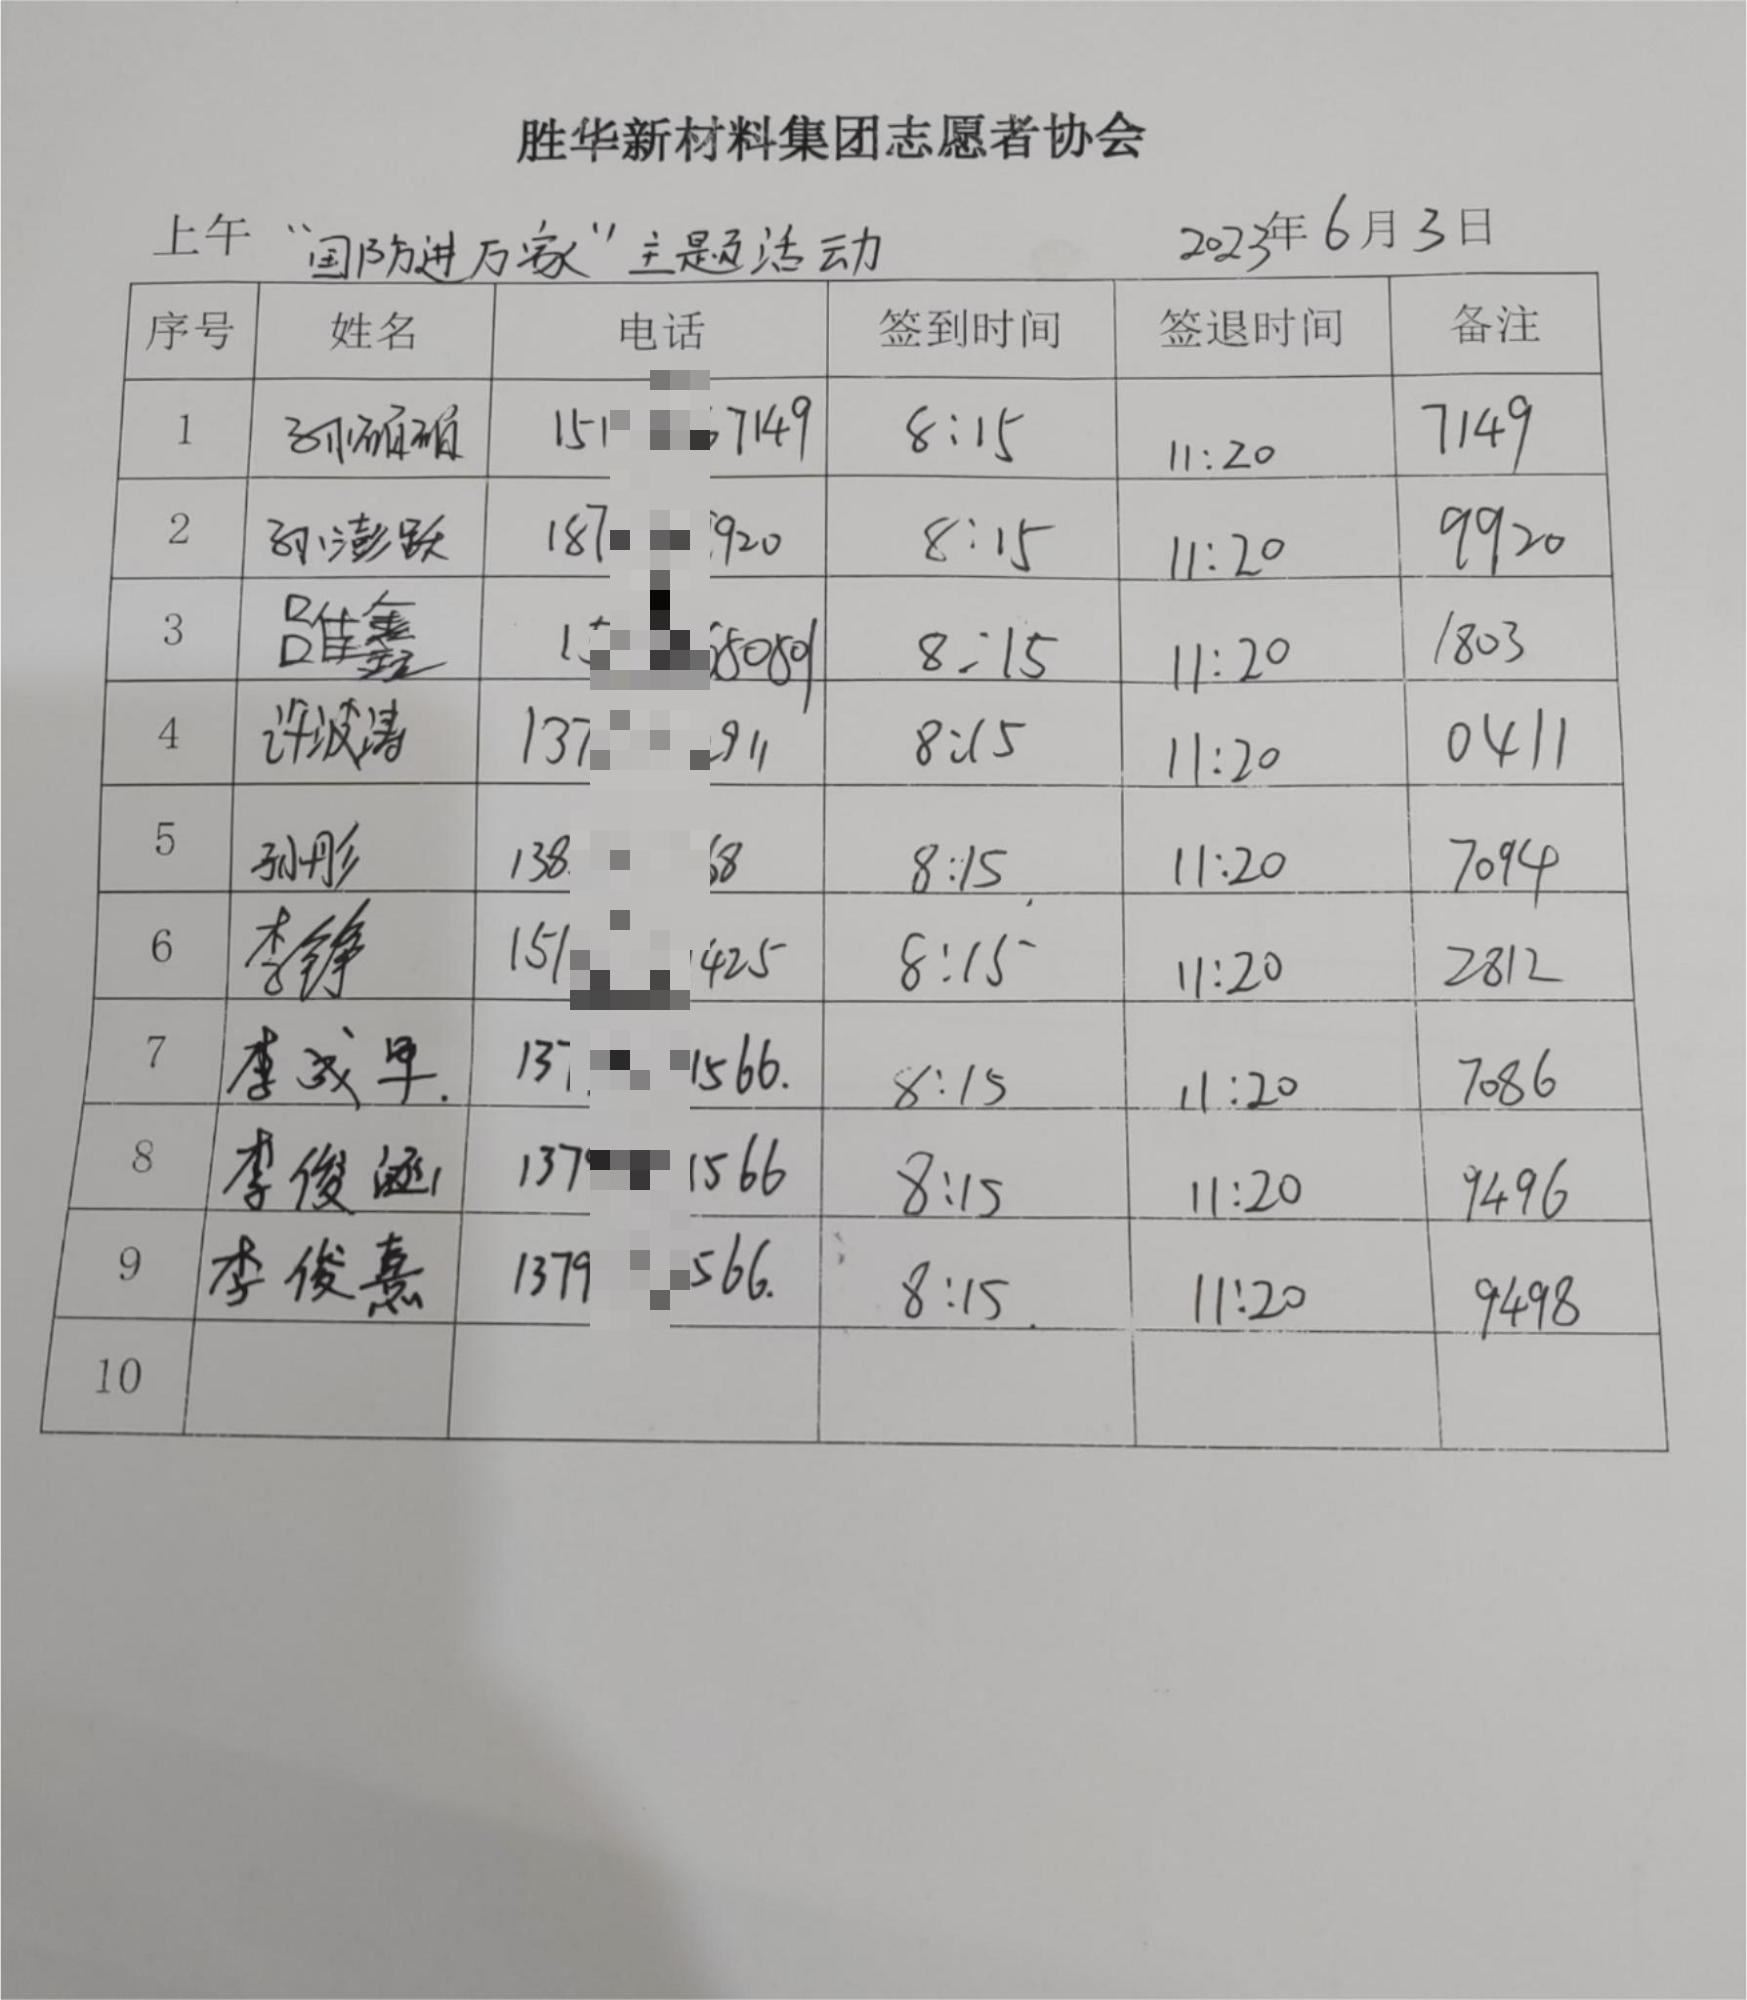 胜华新材料集团志愿者协会
上午 “国防进万家”主题活动 2023年6月3日
序号 姓名 电话 签到时间 签退时间 备注
1 孙硕硕 151 7149 8:15 11:20 7149
2 孙澎跃 187 920 8:15 11:20 9920
3 吕佳鑫 15 8:15 11:20 1803
4 许波涛 137 911 8:15 11:20 0411
5 孙彤 138 68 8:15 11:20 7094
6 李铮 151 1425 8:15 11:20 2812
7 李成早. 137 1566. 8:15 11:20 7086
8 李俊涵 137 1566 8:15 11:20 9496
9 李俊熹 1379 566. 8:15 11:20 9498
10